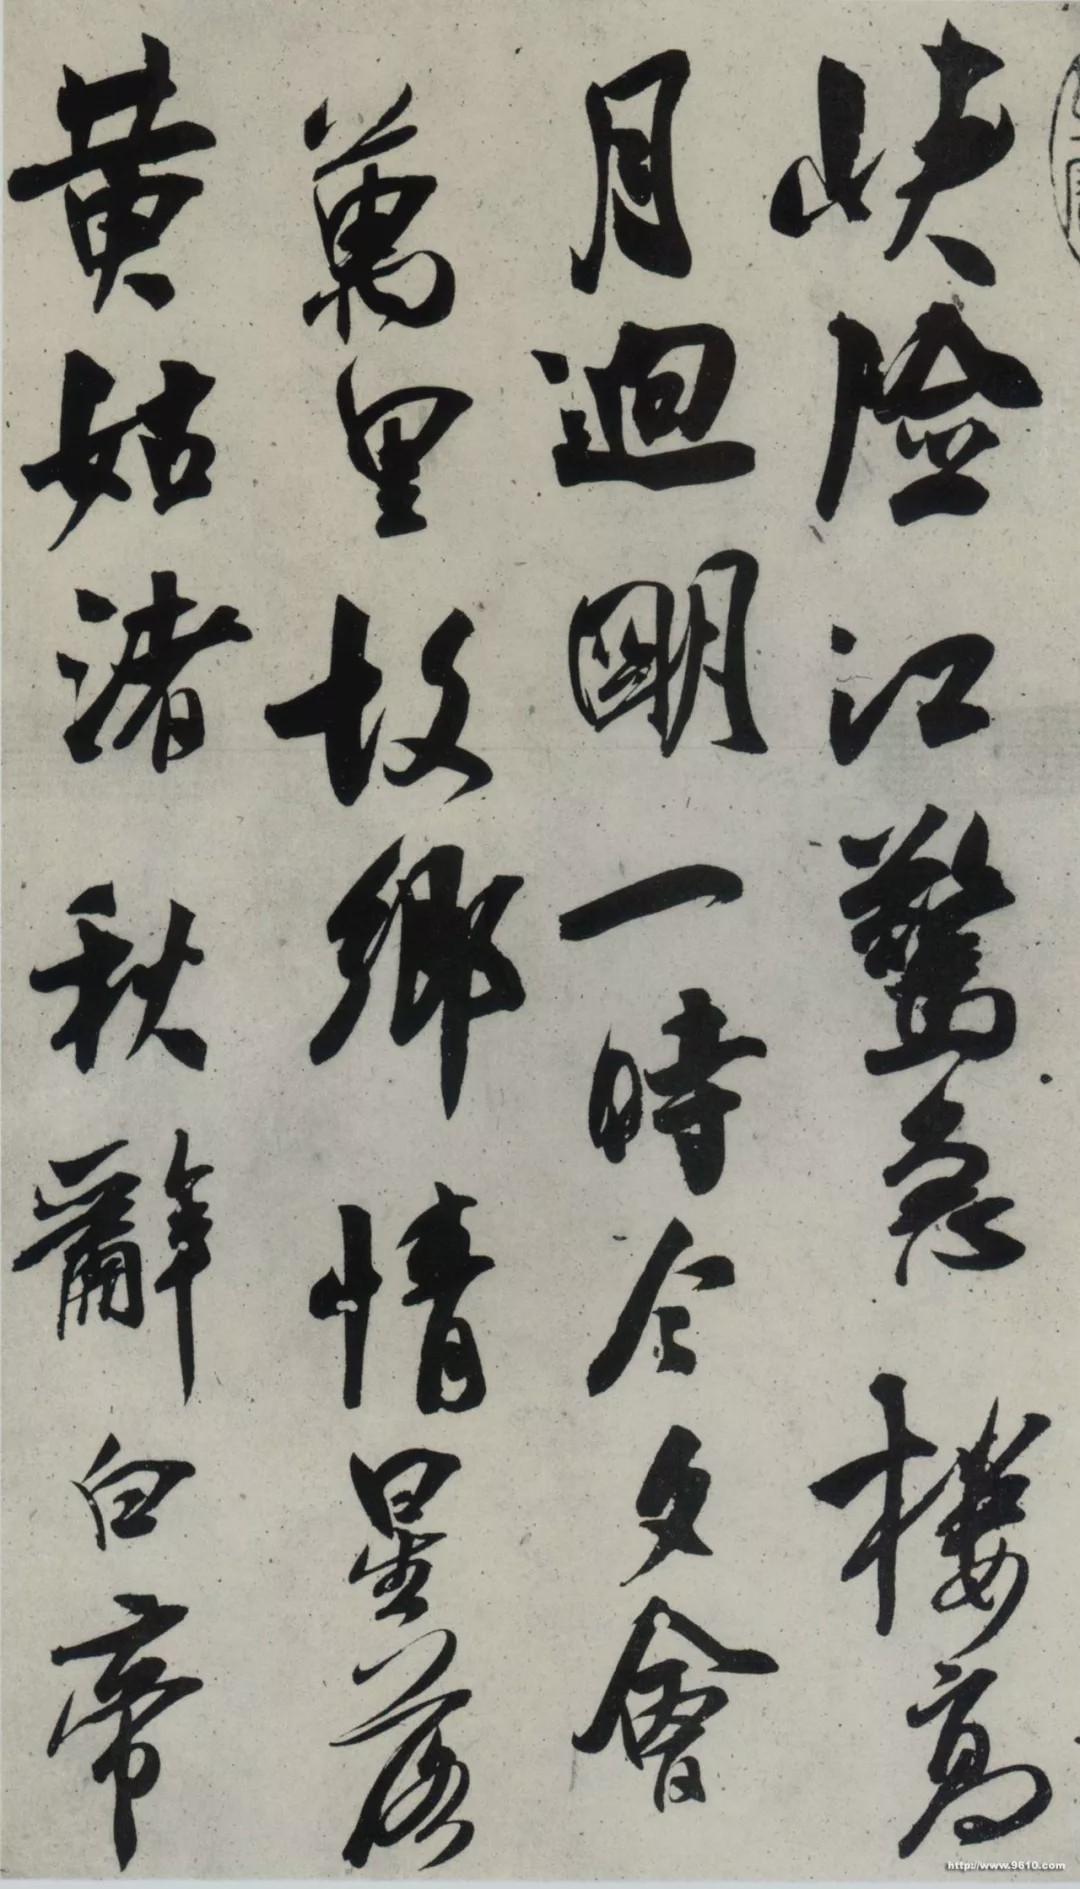 峽險江驚急樓高
月逈明一時今夕會
萬里故鄉情星落
黃姑渚秋辭白帝
http://www.9610.com